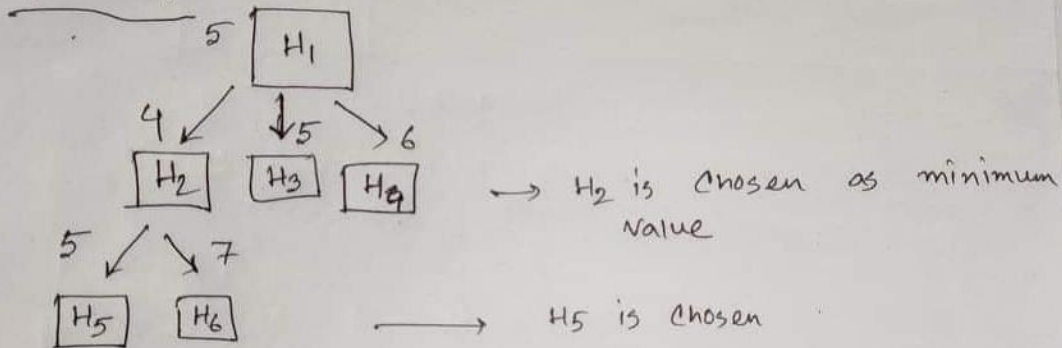 5 H1
4 5 6
H2 H3 H4 → H2 is chosen as minimum
value
5 7
H5 H6 → H5 is chosen